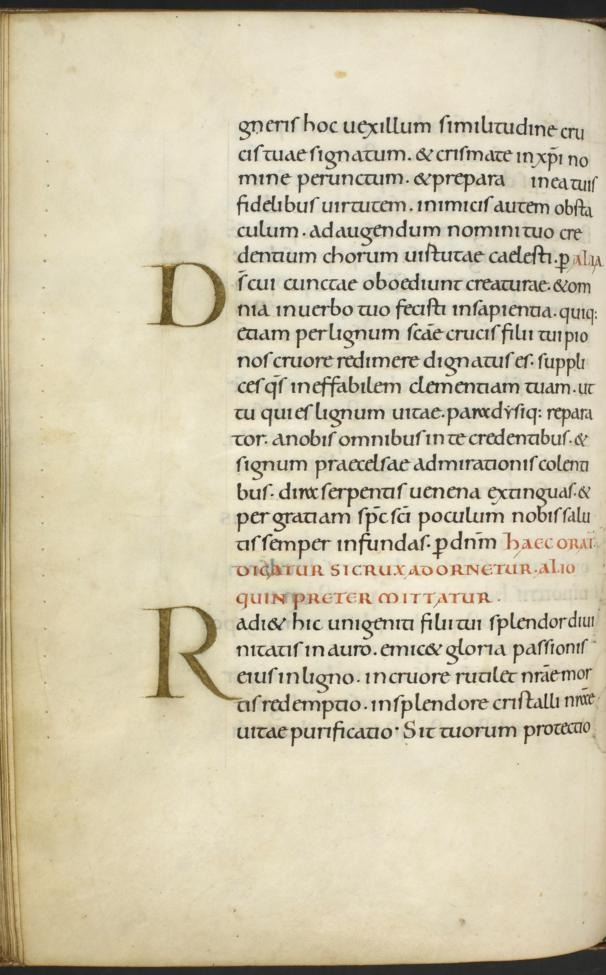 gneris hoc uexillum similitudine cru
cis tuae signatum. & crismate in xp̄i no
mine perunctum. & prepara in ea tuis
fidelibus uirtutem. inimicis autem obsta
culum. ad augendum nomini tuo cre
dentium chorum uistutae caelesti. p̱ ALIA
Ds̄ cui cunctae oboediunt creaturae. & om
nia in uerbo tuo fecisti in sapientia. quiq:
etiam per lignum scāe crucis filii tui pio
nos cruore redimere dignatus es. suppli
ces qs̄ ineffabilem clementiam tuam. ut
tu qui es lignum uitae. paradysiq: repara
tor. a nobis omnibus in te credentibus. &
signum praecelsae admirationis colenti
bus. dira serpentis uenena extinguas. &
per gratiam sp̄c sc̄i poculum nobis salu
tis semper infundas. p̱ dnm̄ HAEC ORAT̄
DICATUR SI CRUX ADORNETUR. ALIO
QUIN PRETERMITTATUR.
Radi& hic unigeniti filii tui splendor diui
nitatis in auro. emic& gloria passionis
eius in ligno. in cruore rutilet nr̄ae mor
tis redemptio. in splendore cristalli nr̄ae
uitae purificatio. Sit tuorum protectio